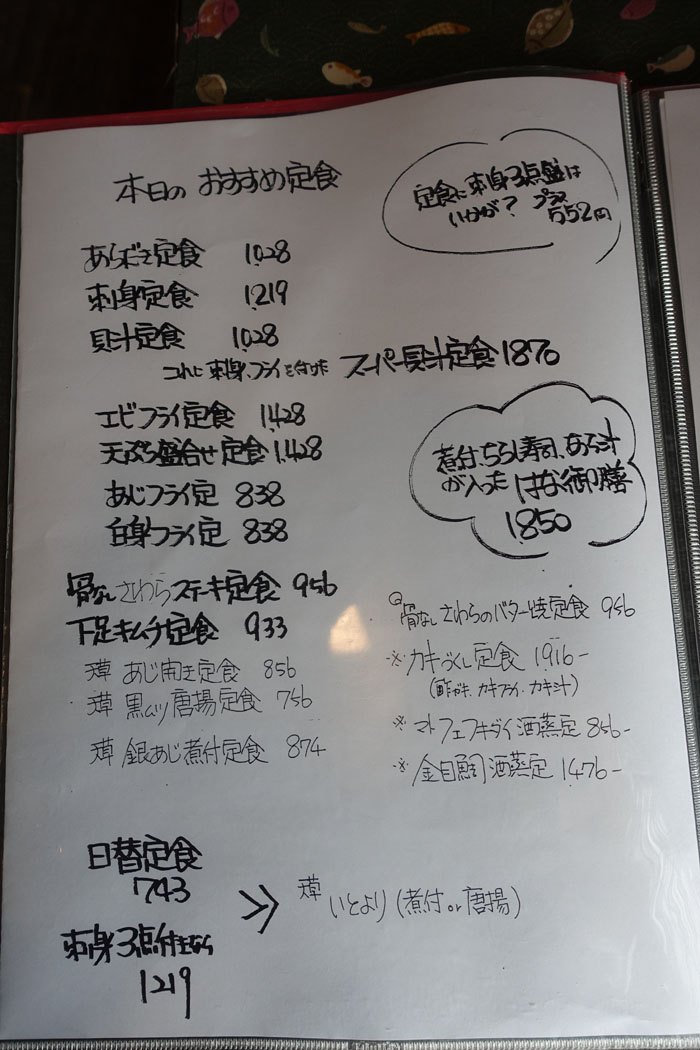 本日の おすすめ定食
定食に 刺身3点盛は
いかが? プラス
552円
あらだき定食 1,028
刺身定食 1,219
貝汁定食 1,028
これに 刺身、フライを付けた スーパー貝汁定食 1870
エビフライ定食 1,428
天ぷら盛合せ定食 1,428
あじフライ定 838
白身フライ定 838
煮付、ちらし寿司、あら汁
が入った はな御膳
1,850
骨なしさわらステーキ定食 956
下足キムチ定食 933
あじ開き定食 856
黒ムツ唐揚定食 756
銀あじ煮付定食 874
骨なしさわらのバター焼定食 956
※カキづくし定食 1916-
(酢ガキ、カキフライ、カキ汁)
※マトフエフキダイ酒蒸定 856-
※金目鯛酒蒸定 1476-
日替定食
743
刺身3点付きなら
1219
≫ いとより(煮付or唐揚)